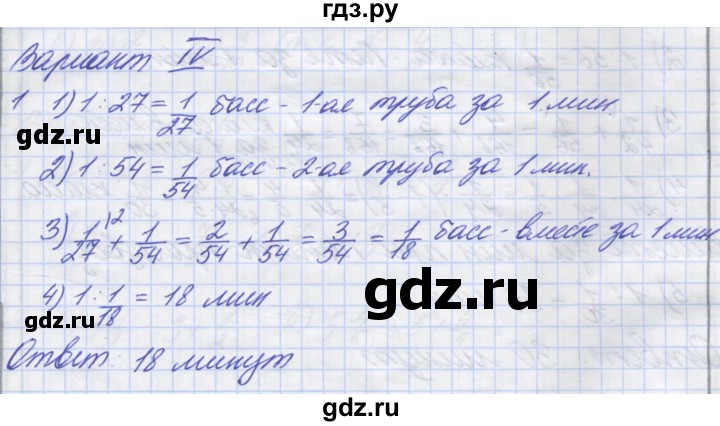 гдз.ру
Вариант IV
1 1) 1 : 27 = 1/27 басс - 1-ая труба за 1 мин.
gdz.ru gdz.ru
2) 1 : 54 = 1/54 басс - 2-ая труба за 1 мин.
3) 1/27 \2 + 1/54 = 2/54 + 1/54 = 3/54 = 1/18 басс - вместе за 1 мин
gdz.ru
4) 1 : 1/18 = 18 мин
gdz.ru
Ответ: 18 минут
gdz.ru